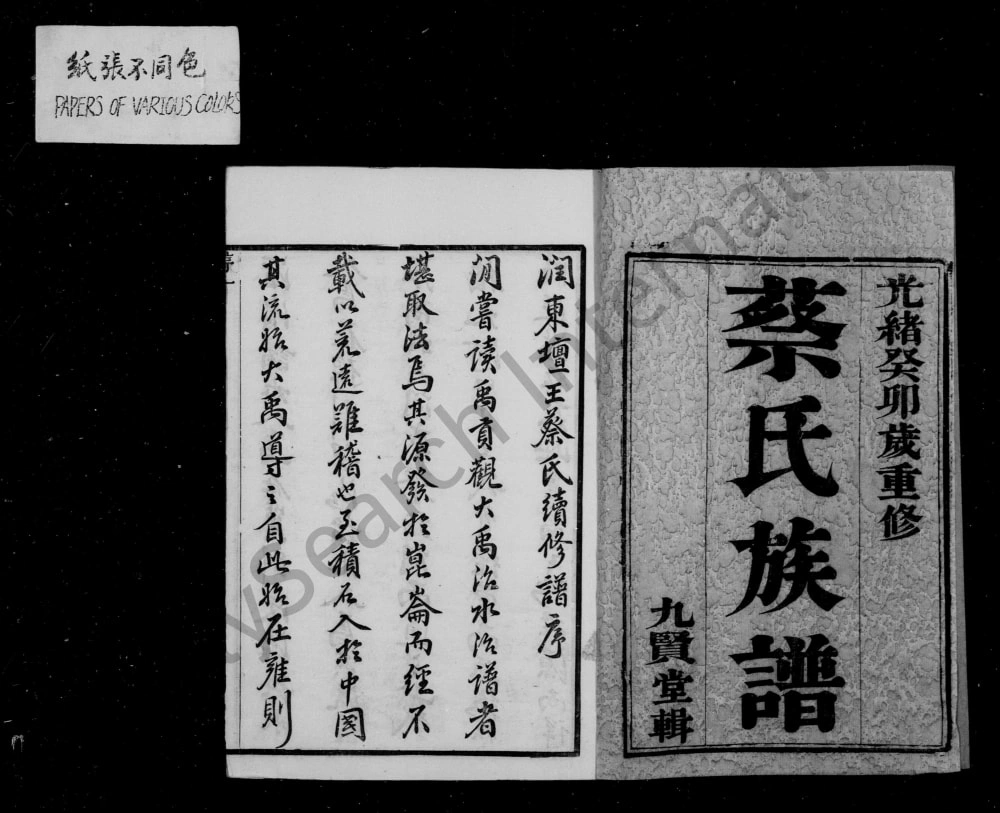 紙張不同色
PAPERS OF VARIOUS COLORS
光緒癸卯歲重修
蔡氏族譜
九賢堂輯
潤東壇王蔡氏續修譜序
閒嘗讀禹貢觀大禹治水治譜者
堪取法焉其源發於崑崙而經不
載以荒遠難稽也至積石入於中國
其流始大禹導之自此始在雍則